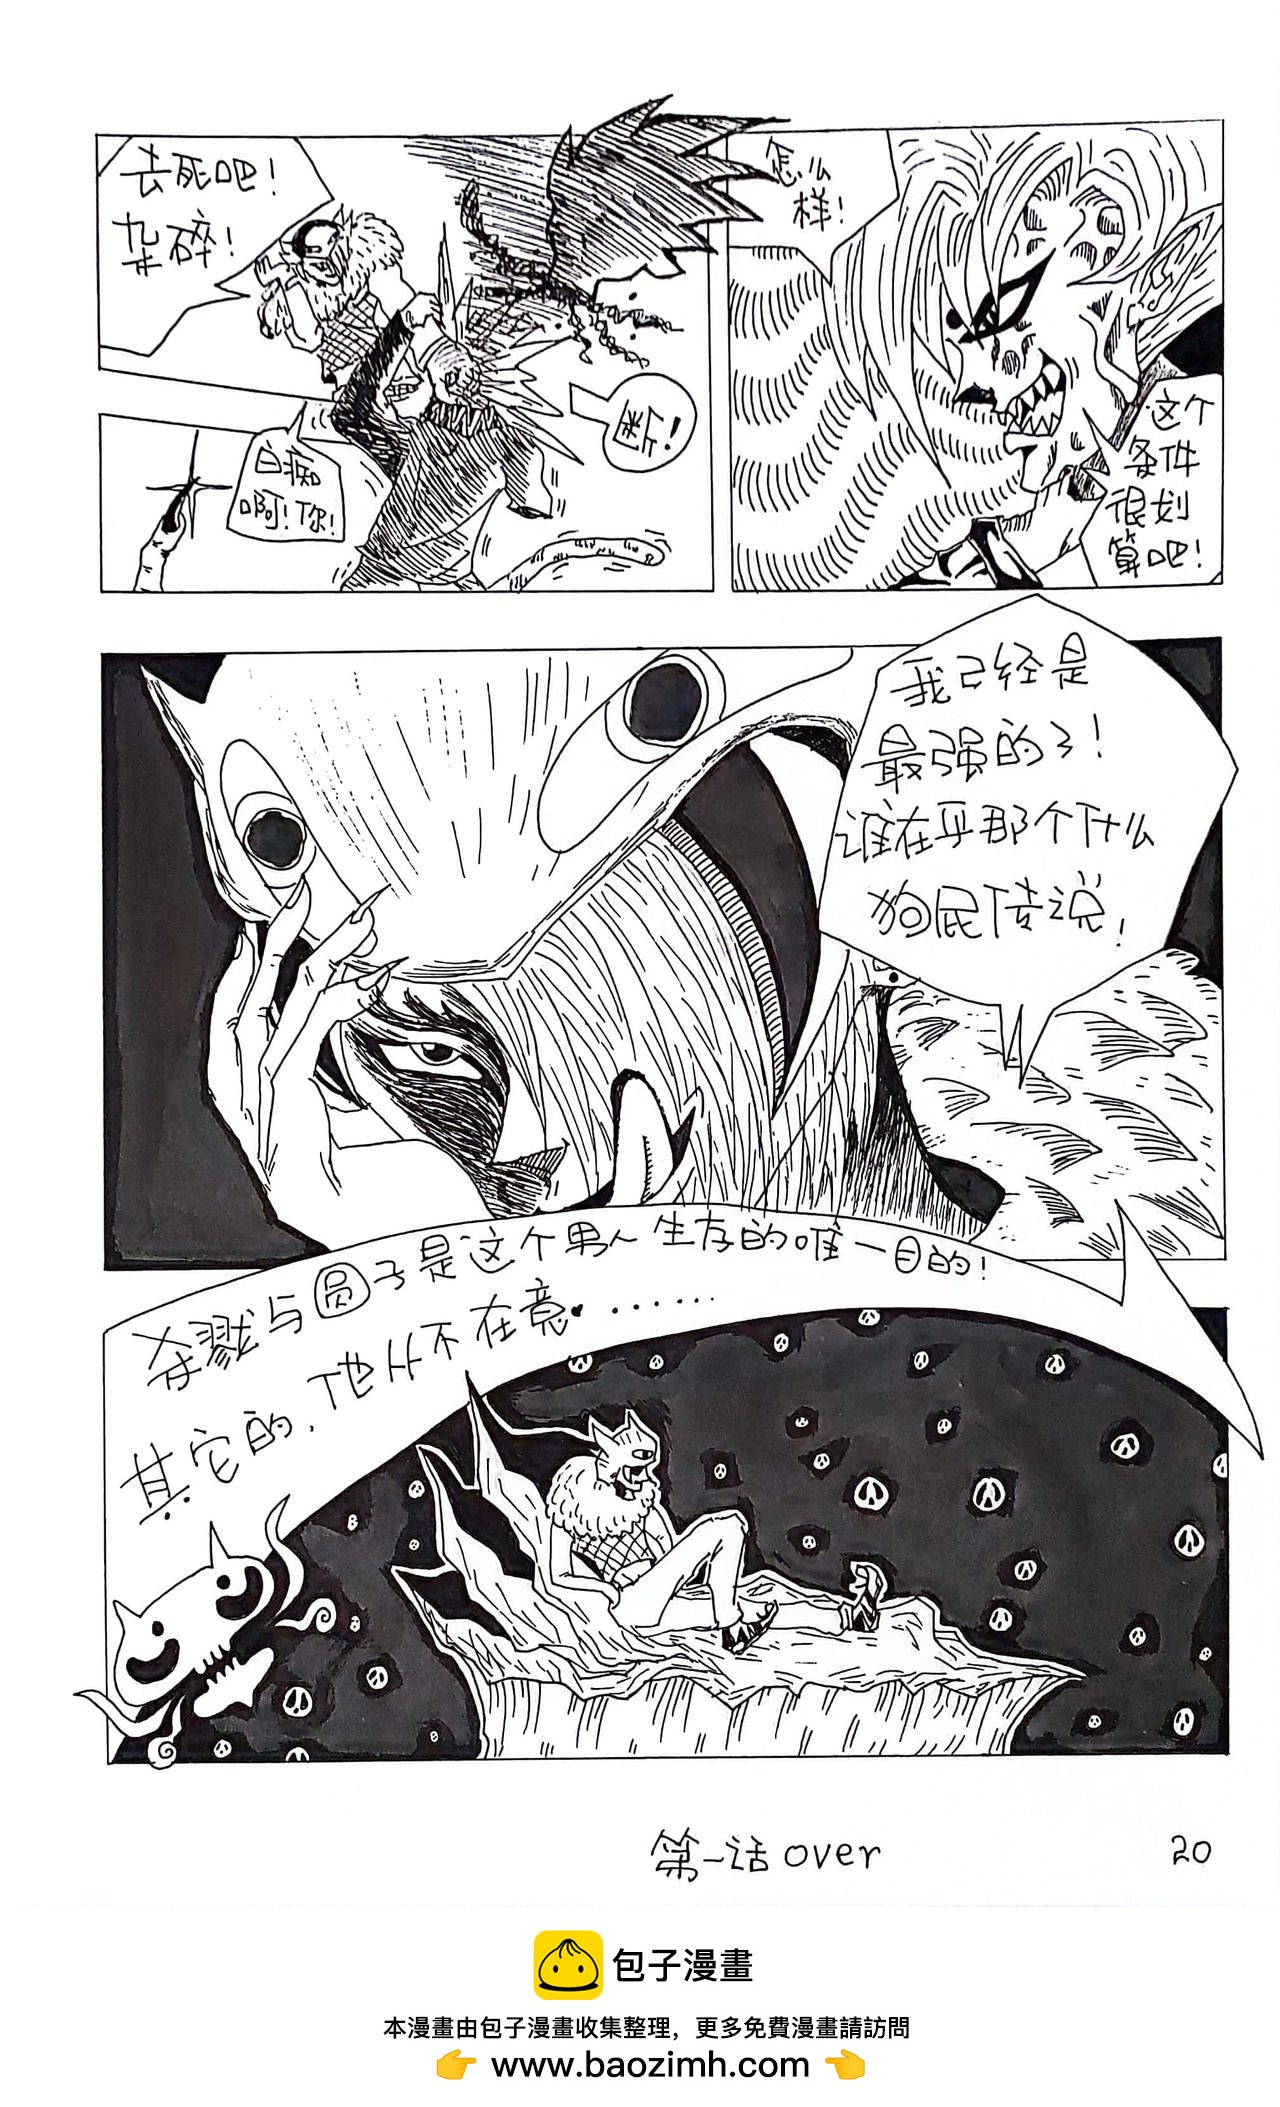 去死吧！
杂碎！
断！
白痴
啊！你！
怎么
样！
这个
条件
很划
算吧！
我已经是
最强的了！
谁在乎那个什么
狗屁传说！
杀戮与圆子是这个男人生存的唯一目的！
其它的，他从不在意.......
第一话over
20
包子漫畫
本漫畫由包子漫畫收集整理，更多免費漫畫請訪問
👉 www.baozimh.com 👈